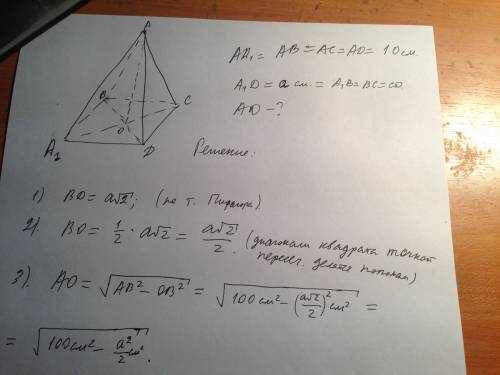 A
B
C
O
A₁
D
AA₁ = AB = AC = AD = 10 см.
A₁D = a см. = A₁B = BC = CD.
AO - ?
Решение:
1) BD = a√2; (по т. Пифагора).
2). BO = 1/2 · a√2 = a√2/2. (диагонали квадрата точкой
пересеч. делятся пополам)
3). AO = √(AB² - OB²) = √(100 см² - (a√2/2)² см²) =
= √(100 см² - a²/2 см²).